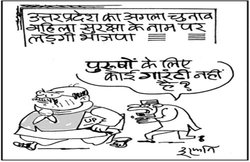 उत्तरप्रदेश का अगला चुनाव
महिला सुरक्षा के नाम पर
लड़ेगी भाजपा
पुरुषों के लिए
कोई गारंटी नहीं
है?